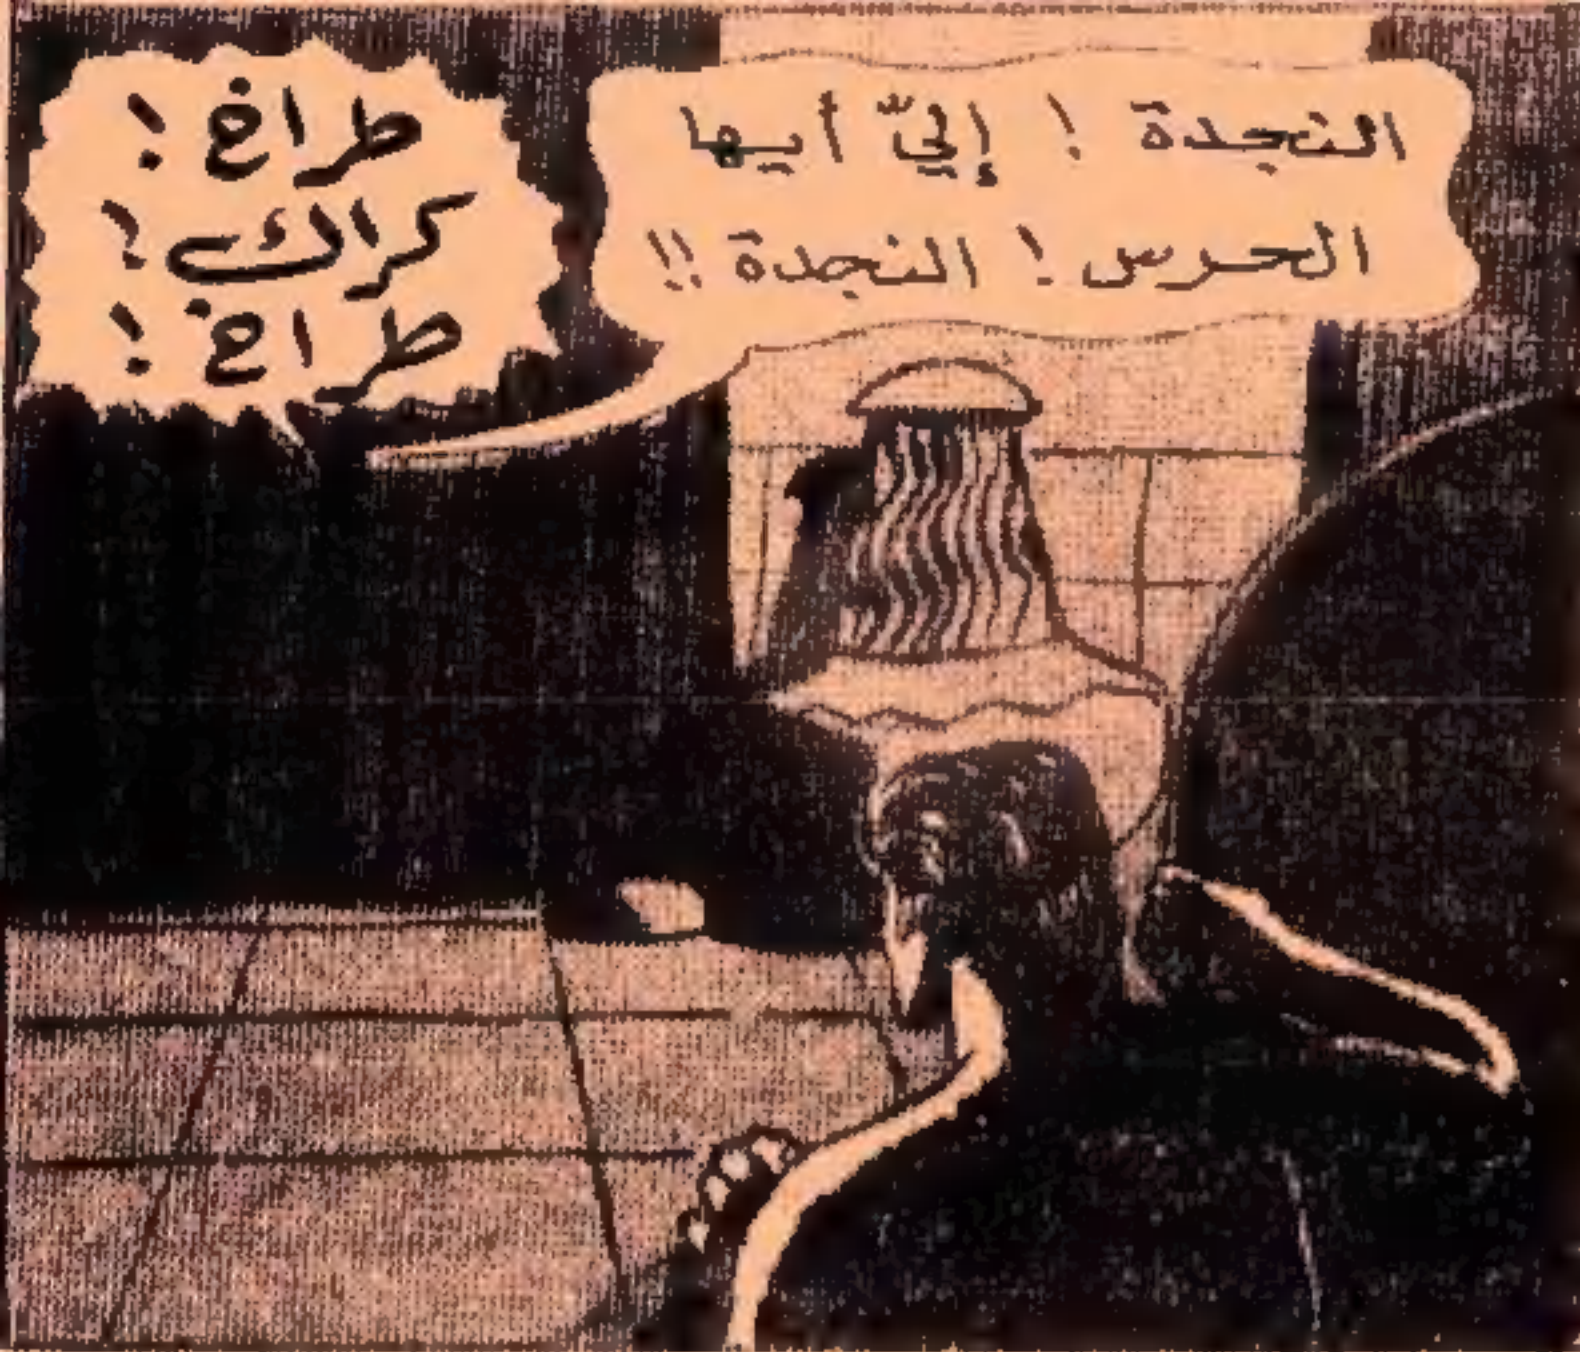 النجدة ! إليّ أيها
الحرس ! النجدة !!
طراخ !
كراك !
طراخ !